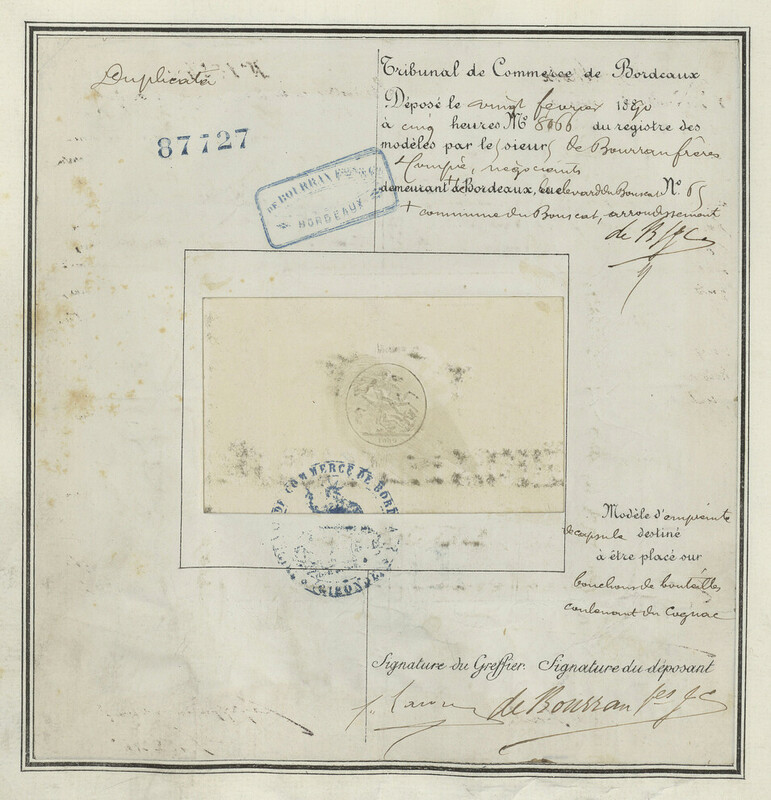 Duplicata
87727
DE BOURRAN
BORDEAUX
Tribunal de Commerce de Bordeaux
Déposé le vingt février 1890
à cinq heures N° 8066 du registre des
modèles par les sieurs de Bourran frères
& Compie, négociants
demeurant à Bordeaux, boulevard du Bouscat N° 65
+ commune du Bouscat, arrondissement
de B
COMMERCE DE BORD
GIRONDE
Modèle d'empreinte
de capsule destiné
à être placé sur
bouchons de bouteilles
contenant du Cognac
Signature du Greffier. Signature du déposant
de Bourran